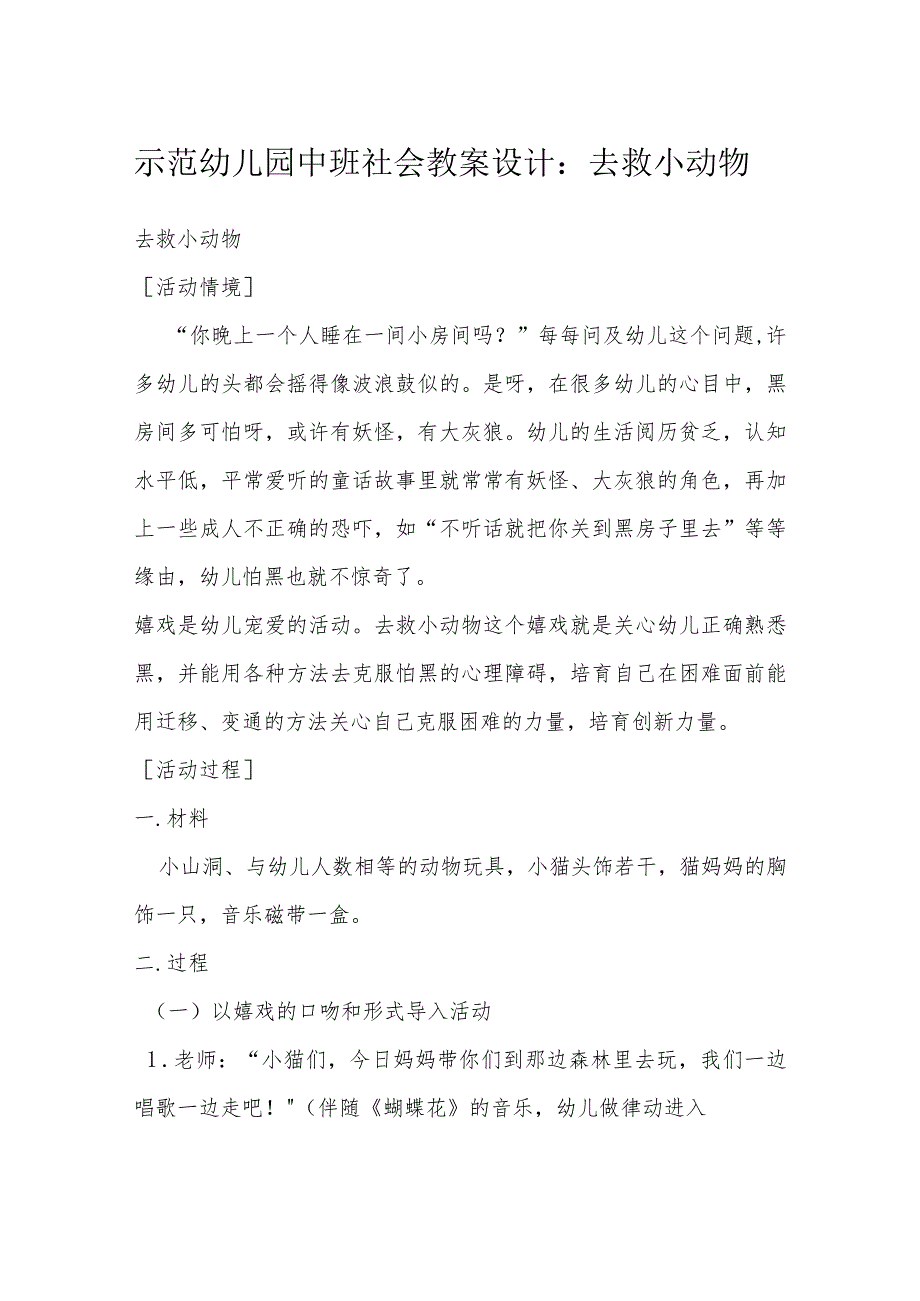 示范幼儿园中班社会教案设计：去救小动物
去救小动物
［活动情境］
“你晚上一个人睡在一间小房间吗？”每每问及幼儿这个问题,许
多幼儿的头都会摇得像波浪鼓似的。是呀，在很多幼儿的心目中，黑
房间多可怕呀，或许有妖怪，有大灰狼。幼儿的生活阅历贫乏，认知
水平低，平常爱听的童话故事里就常常有妖怪、大灰狼的角色，再加
上一些成人不正确的恐吓，如“不听话就把你关到黑房子里去”等等
缘由，幼儿怕黑也就不惊奇了。
嬉戏是幼儿宠爱的活动。去救小动物这个嬉戏就是关心幼儿正确熟悉
黑，并能用各种方法去克服怕黑的心理障碍，培育自己在困难面前能
用迁移、变通的方法关心自己克服困难的力量，培育创新力量。
［活动过程］
一.材料
小山洞、与幼儿人数相等的动物玩具，小猫头饰若干，猫妈妈的胸
饰一只，音乐磁带一盒。
二.过程
（一）以嬉戏的口吻和形式导入活动
1.老师：“小猫们，今日妈妈带你们到那边森林里去玩，我们一边
唱歌一边走吧！"（伴随《蝴蝶花》的音乐，幼儿做律动进入